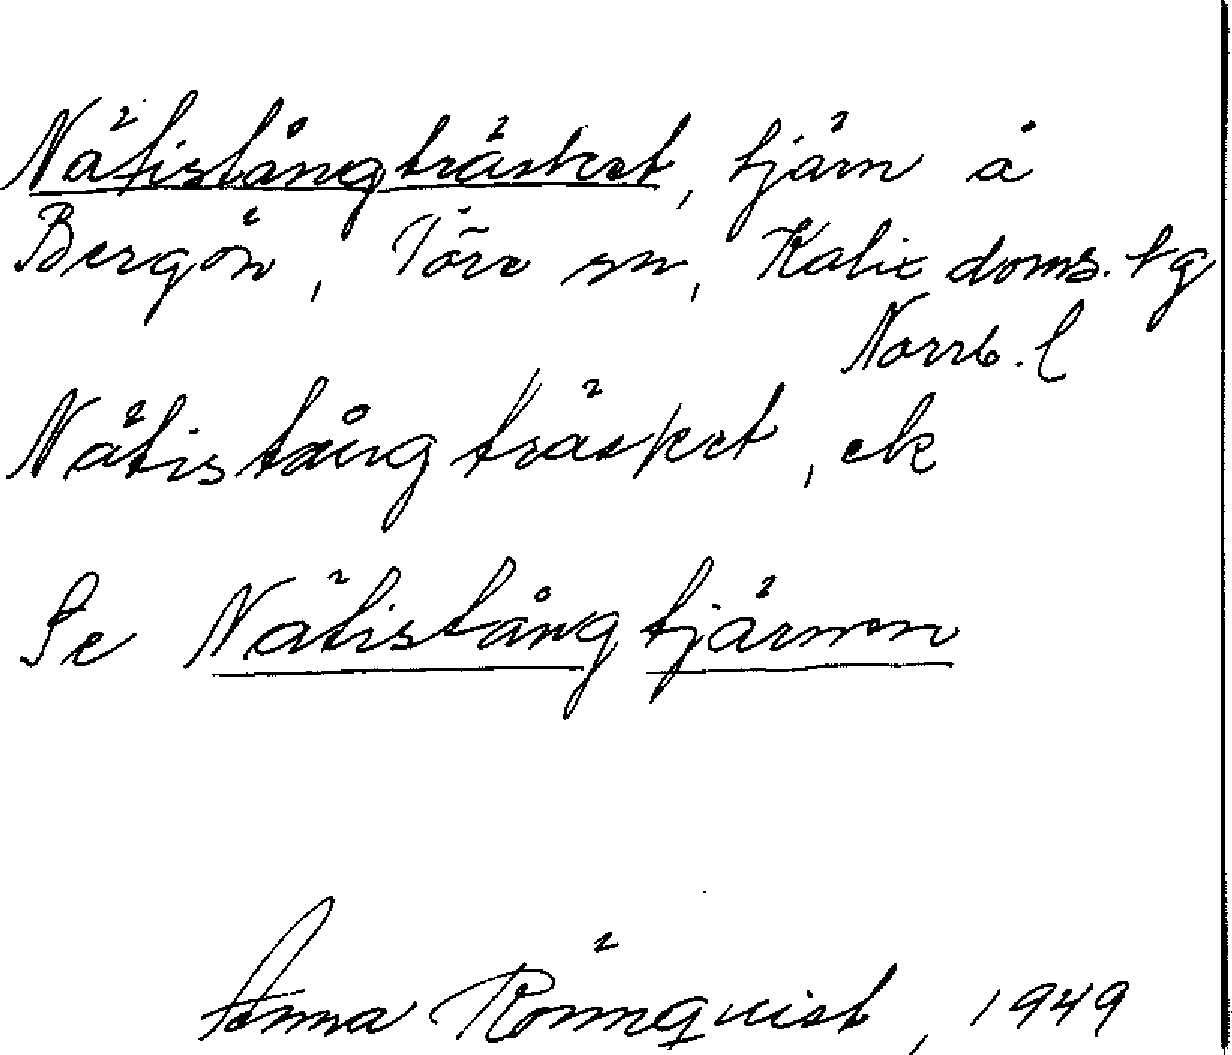 Nätistångträsket, tjärn å
Bergön, Töre sn, Kalix doms. tg
Norrb. l
Nätistångträsket, ek
Se Nätistångtjärnen
Anna Rönnqvist, 1949